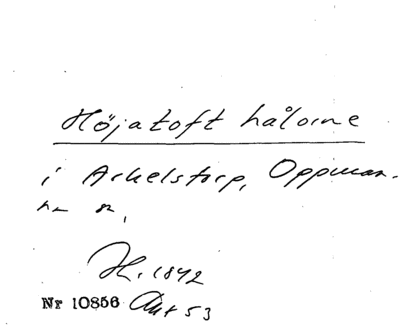 Höjatoft hålorne
i Arkelstorp, Oppman-
na s.
H. 1842
Nr 10856 Akt 53